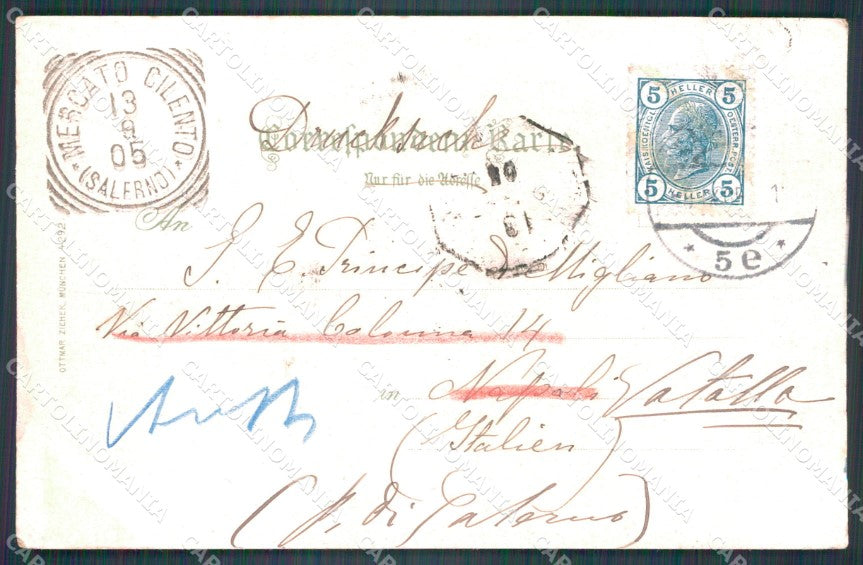 MERCATO CILENTO
13
8
05
(SALERNO)
Drucksache
Correspondenz-Karte
Nur für die Adresse
An
5 HELLER 5
KAIS. KOENIGL. OESTERR. POST
5 HELLER 5
5e
1
S. E. Principe di Migliano
Via Vittoria Colonna 14
in Napoli Vatolla
(Italien)
(p. di Salerno)
OTTMAR ZIEHER, MÜNCHEN 4092
CARTOLINOMANIA